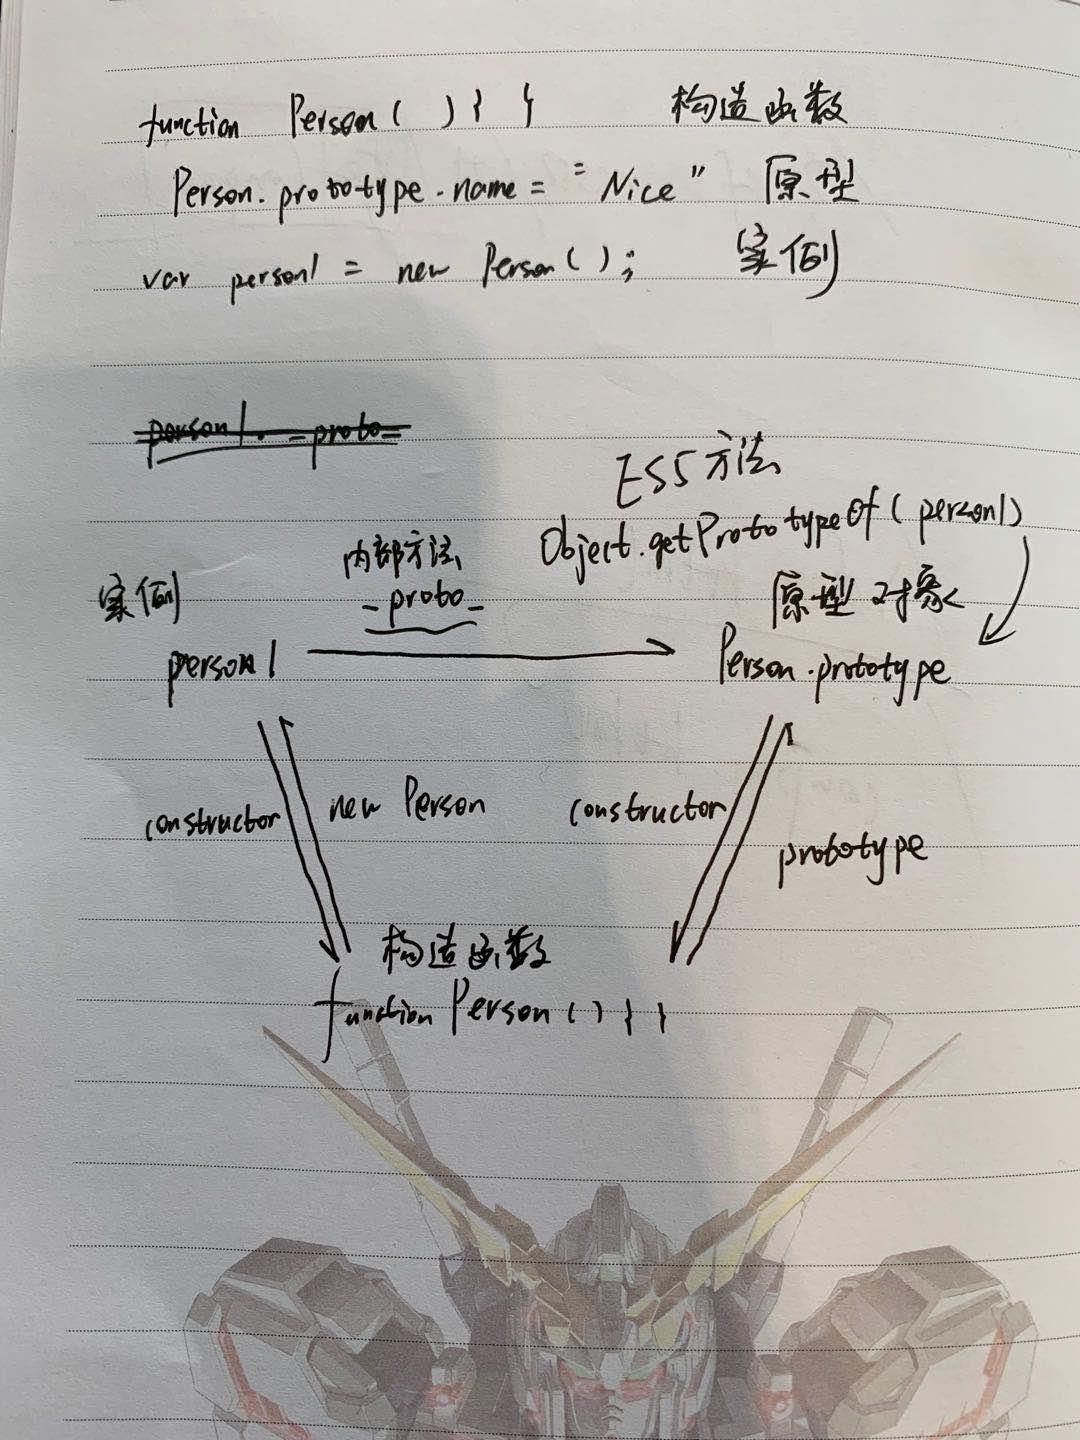 function Person ( ) { } 构造函数
Person.prototype.name = "Nice" 原型
var person1 = new Person ( ) ; 实例
person1. _proto_
ES5方法
Object.getPrototypeOf ( person1 )
内部方法
_proto_
实例
原型对象
person1
Person.prototype
constructor
new Person
constructor
prototype
构造函数
function Person ( ) { }